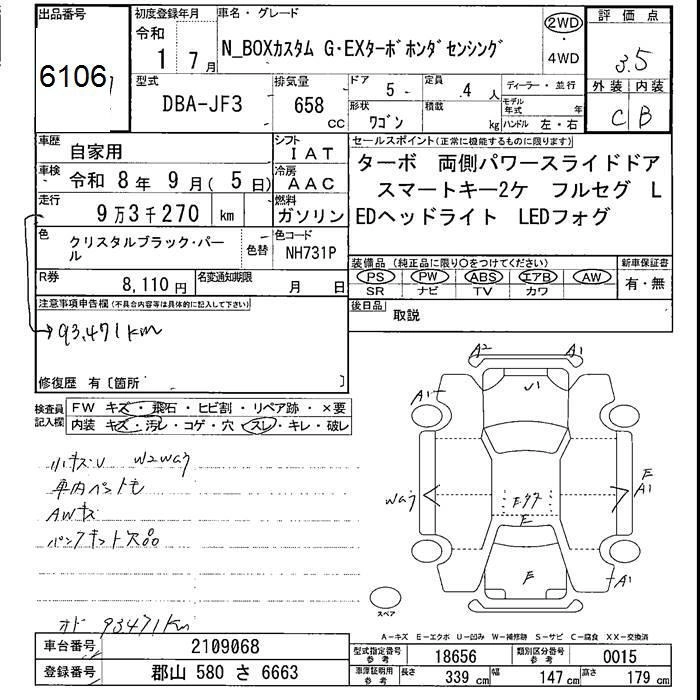 出品番号
6106
初度登録年月
令和
1 7月
車名・グレード
N_BOXカスタム G・EXターボホンダセンシング
2WD
・
4WD
評価点
3.5
外装 内装
C B
型式
DBA-JF3
排気量
658
CC
ドア
5
定員
4人
形状
ワゴン
積載
kg
ディーラー・並行
モデル年式 年
ハンドル 左・右
車歴
自家用
シフト
IAT
車検
令和 8年 9月( 5日)
冷房
AAC
走行
9万3千270 km
燃料
ガソリン
色
クリスタルブラック・パール
色替
色コード
NH731P
R券
8,110円
名変通知期限
月 日
セールスポイント(正常に機能するものに限ります)
ターボ 両側パワースライドドア
スマートキー2ケ フルセグ L
EDヘッドライト LEDフォグ
装備品 (純正品に限り○をつけてください)
PS PW ABS エアB AW
SR ナビ TV カワ
新車保証書
有・無
後日品
取説
注意事項申告欄(不具合内容等は具体的に記入して下さい)
93,471km
修復歴 有〔箇所 〕
検査員
記入欄
FW キズ・飛石・ヒビ割・リペア跡・×要
内装 キズ・汚レ・コゲ・穴・スレ・キレ・破レ
小キズU W2way
車内ペットモ
AWキズ
パンクキット欠品
オド 93471km
A2 A1
A1
U1
way
E
A1
E
E
A1
スペア
A-キズ E-エクボ U-凹み W-補修跡 S-サビ C-腐食 XX-交換済
車台番号
2109068
登録番号
郡山 580 さ 6663
型式指定番号
参考
18656
類別区分番号
参考
0015
車庫証明用
参考
長さ
339 cm
幅
147 cm
高さ
179 cm